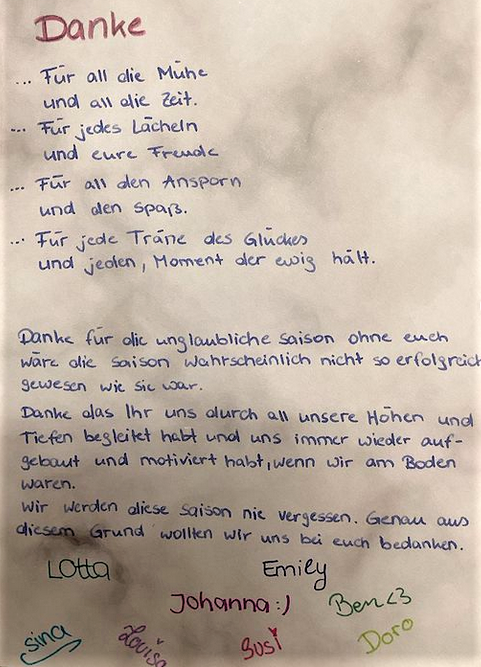 Danke
... Für all die Mühe
und all die Zeit.
... Für jedes Lächeln
und eure Freude
... Für all den Ansporn
und den Spaß.
... Für jede Träne des Glückes
und jeden, Moment der ewig hält.
Danke für die unglaubliche Saison ohne euch
wäre die Saison wahrscheinlich nicht so erfolgreich
gewesen wie sie war.
Danke das Ihr uns durch all unsere Höhen und
Tiefen begleitet habt und uns immer wieder auf-
gebaut und motiviert habt, wenn wir am Boden
waren.
Wir werden diese Saison nie vergessen. Genau aus
diesem Grund wollten wir uns bei euch bedanken.
Lotta Emily
Johanna :) Ben <3
Sina Louisa Susi Doro